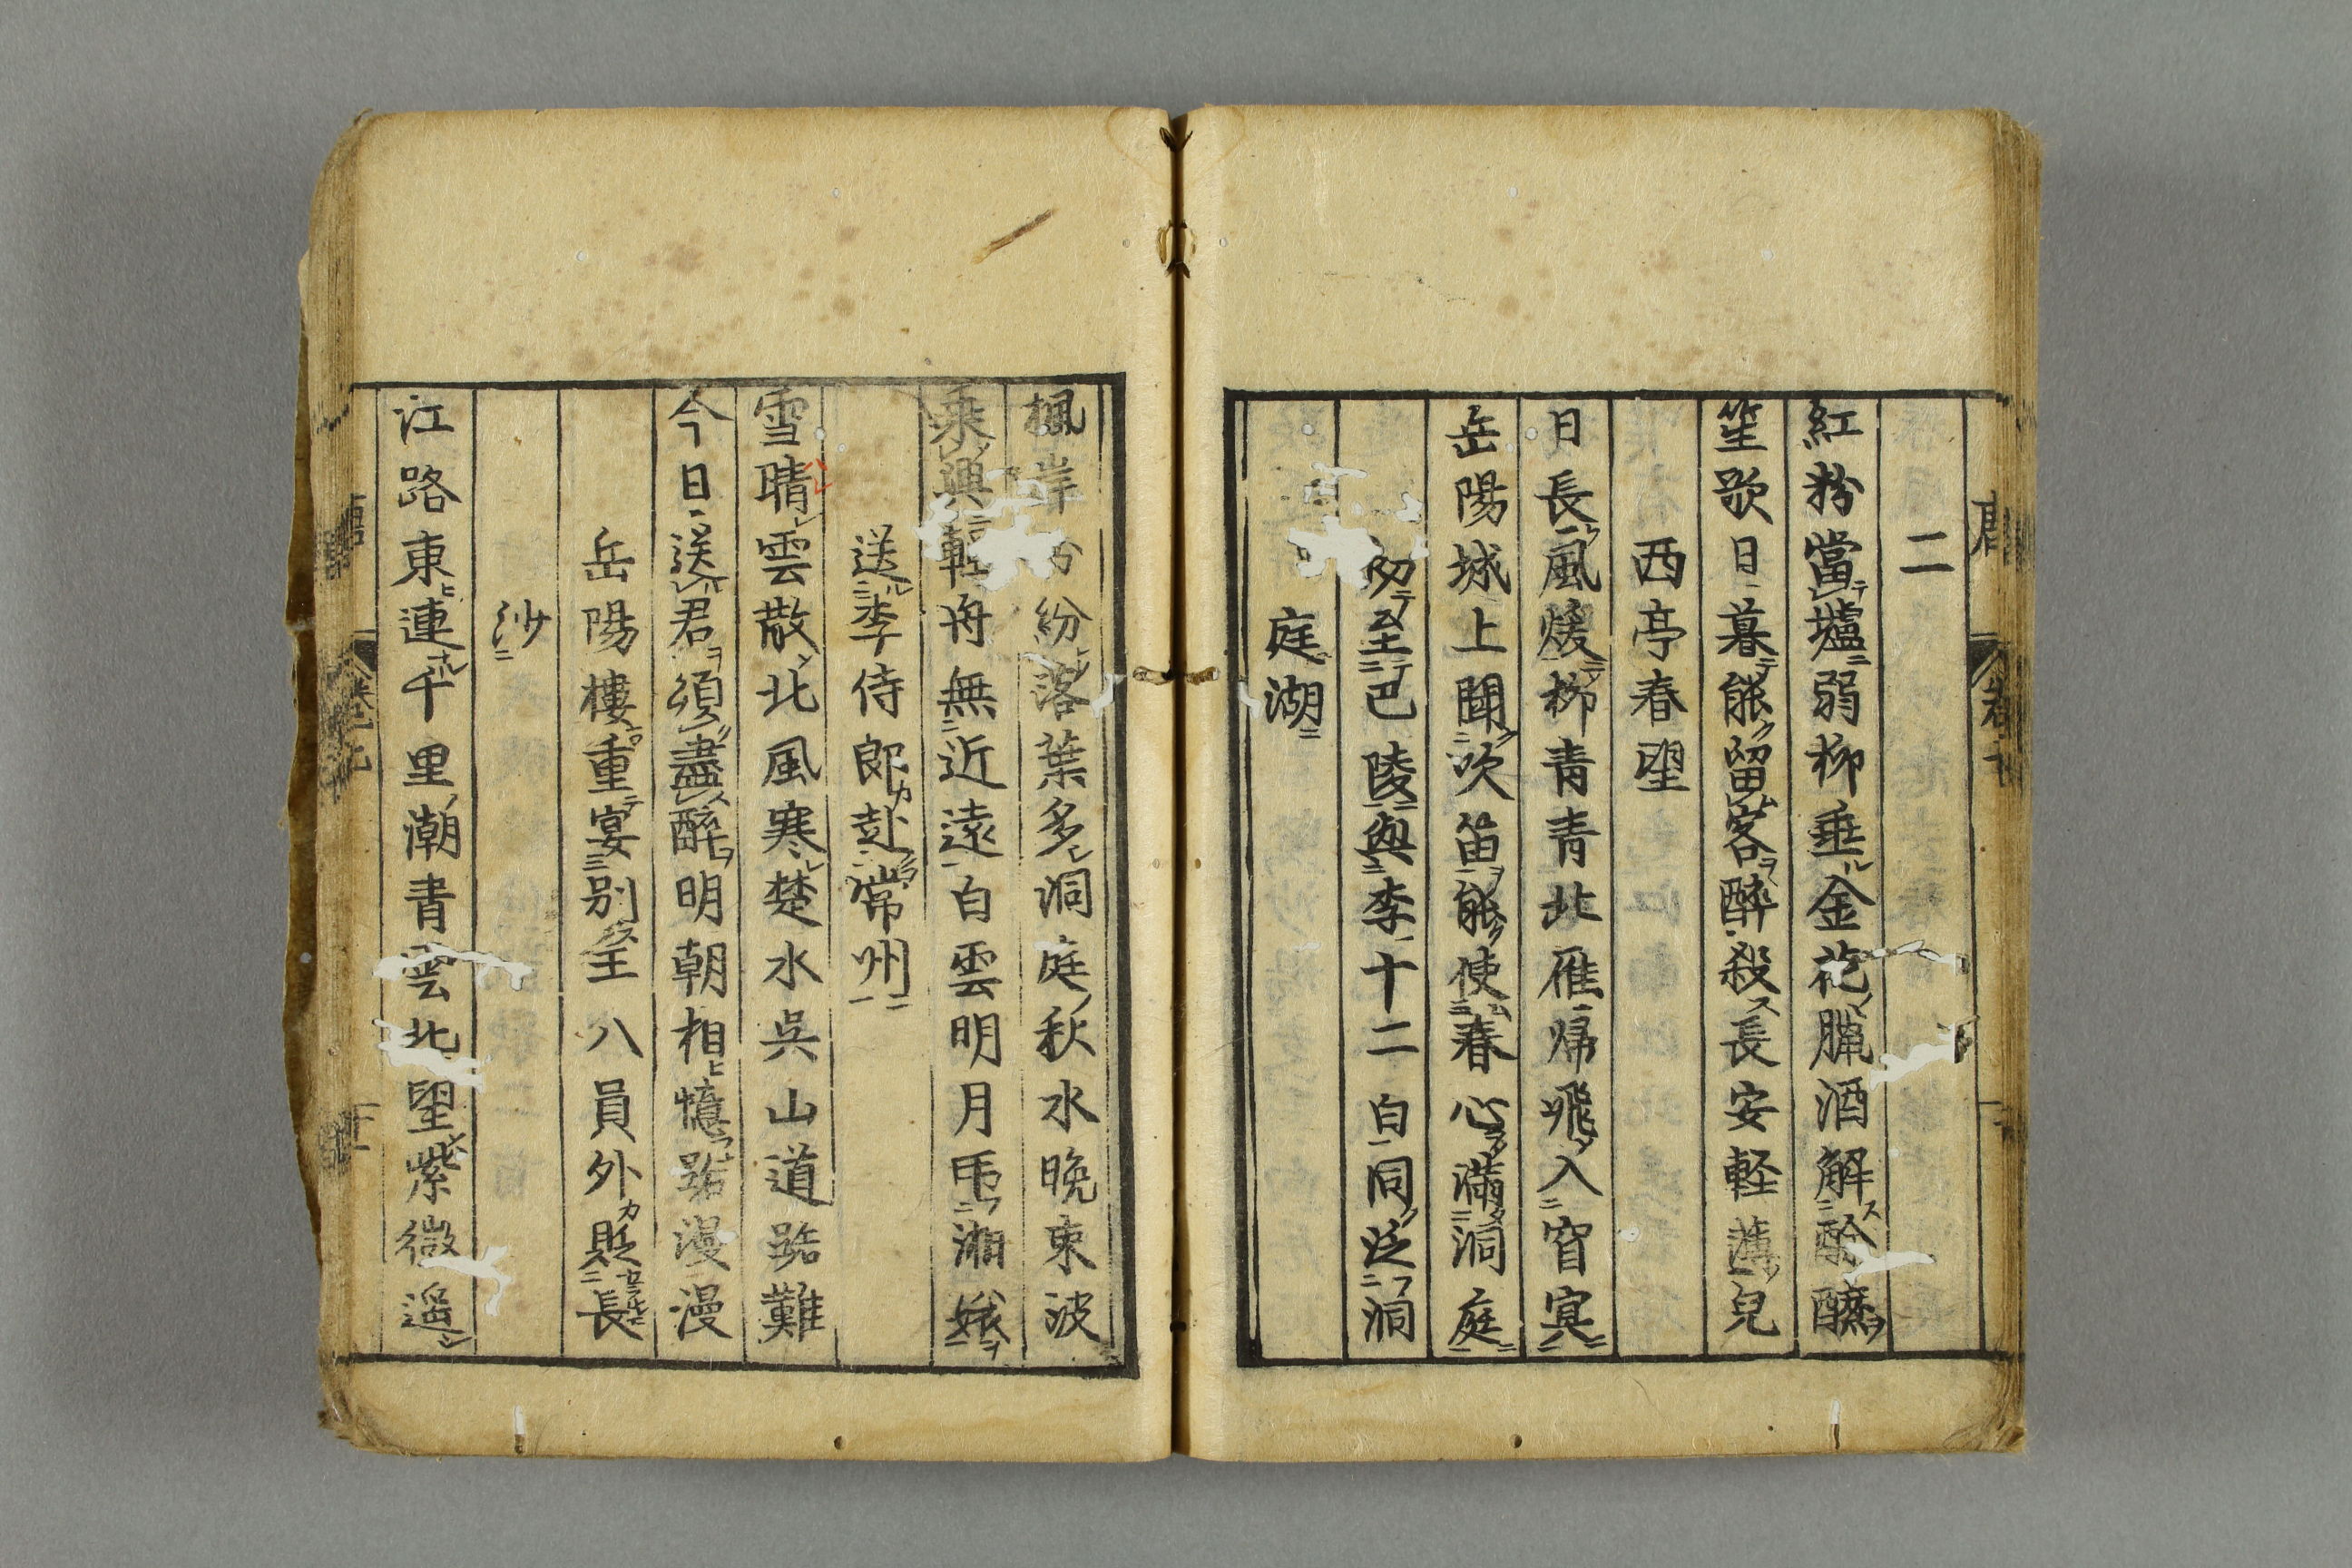 二
紅粉當壚弱柳垂金花臘酒解酴醾
笙歌日暮能留客醉殺長安軽薄兒
西亭春望
日長風煖柳青青北雁帰飛入窅冥
岳陽城上聞吹笛能使春心満洞庭
初至巴陵與李十二白同泛洞
庭湖
楓岸紛紛落葉多洞庭秋水晩来波
乗興軽舟無近遠白雲明月弔湘娥
送李侍郎赴常州
雪晴雲散北風寒楚水呉山道路難
今日送君須盡醉明朝相憶路漫漫
岳陽樓重宴別王八員外貶長
沙
江路東連千里潮青雲北望紫微遥